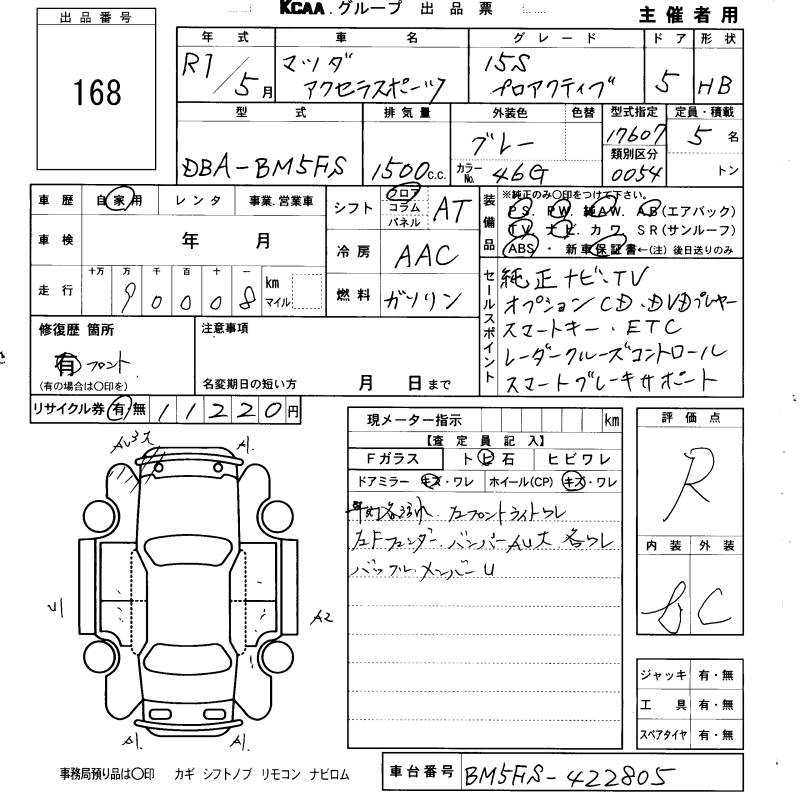 KCAA.グループ 出品票
主催者用
出品番号
168
年式 車名 グレード ドア 形状
R1/5月 マツダ アクセラスポーツ 15S プロアクティブ 5 HB
型式 排気量 外装色 色替 型式指定 定員・積載
DBA-BM5FS 1500c.c. グレー 17607 5名
類別区分
カラーNo. 46G 0054 トン
車歴 自家用 レンタ 事業.営業車
シフト フロア コラム パネル AT
車検 年 月
冷房 AAC
走行 十万 万 千 百 十 一 km マイル
90008
燃料 ガソリン
装備品 ※純正のみ○印をつけて下さい。
PS. PW. 純AW. AB(エアバック)
TV. ナビ. カワ. SR(サンルーフ)
ABS ・ 新車保証書←(注)後日送りのみ
セールスポイント
純正ナビ・TV
オプションCD・DVDプレヤー
スマートキー・ETC
レーダークルーズコントロール
スマートブレーキサポート
修復歴 箇所
有 フロント
(有の場合は○印を)
注意事項
名変期日の短い方 月 日まで
リサイクル券 有 無 11220円
現メーター指示 km
【査定員記入】
Fガラス トビ石 ヒビワレ
ドアミラー キズ・ワレ ホイール(CP) キズ・ワレ
左フロントライトワレ
左Fフェンダー. バンパーAU大 各ワレ
バッフル.メンバーU
評価点
R
内装 外装
C
AU3大 A1.
U1
A2
A1. A1.
ジャッキ 有・無
工具 有・無
スペアタイヤ 有・無
事務局預り品は○印 カギ シフトノブ リモコン ナビロム
車台番号 BM5FS-422805